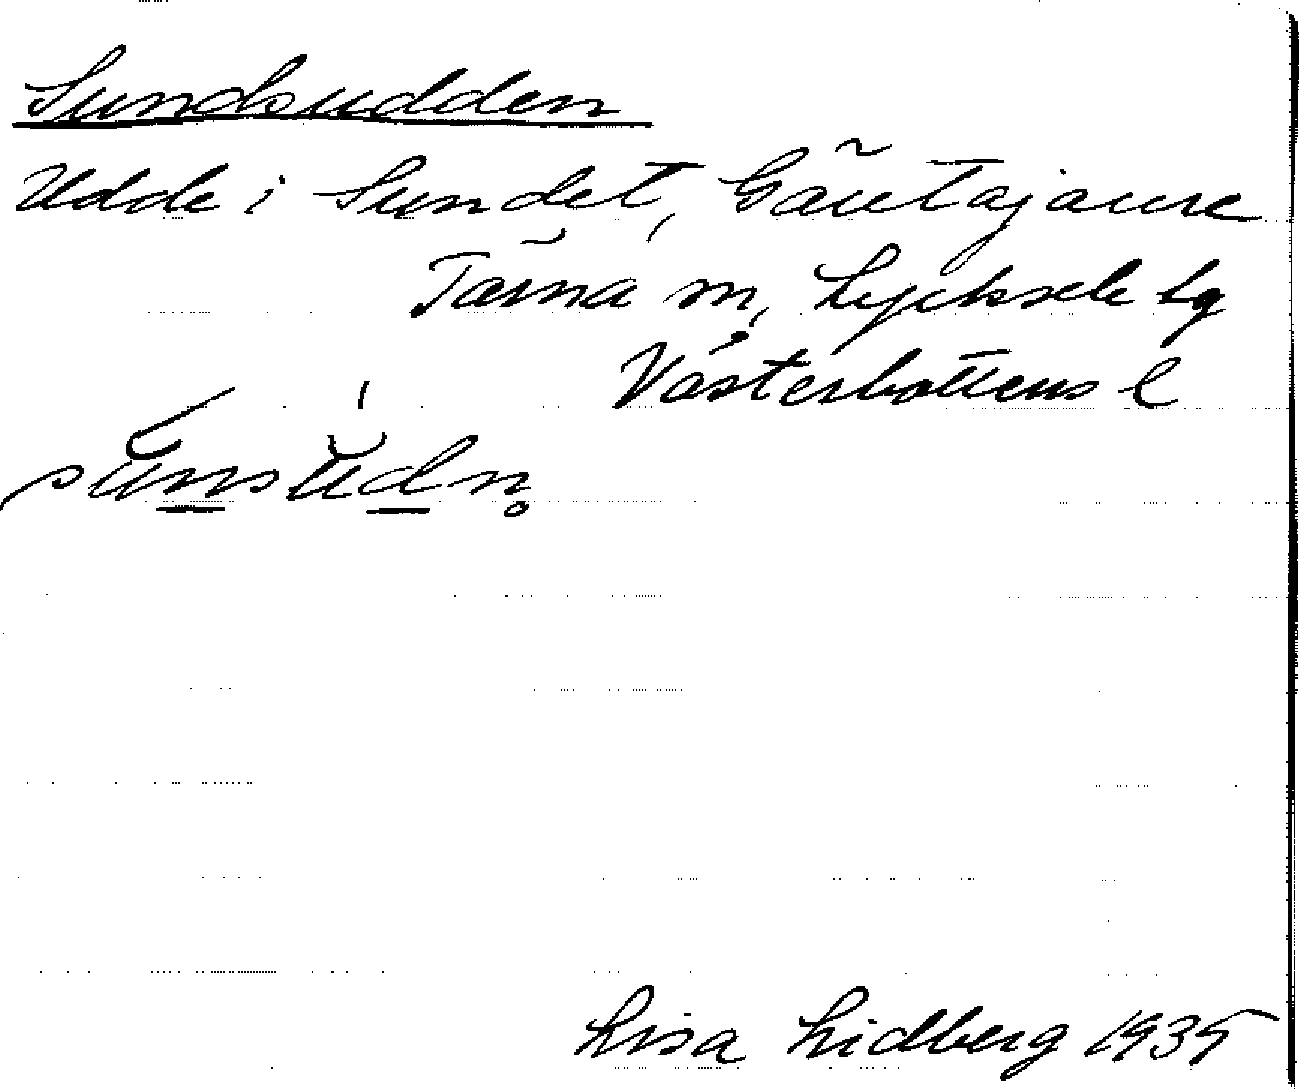 Sundsudden
Udde i Sundet, Gäutajaure
Tärna sn, Lycksele lg
Västerbottens l
Lisa Lidberg 1935